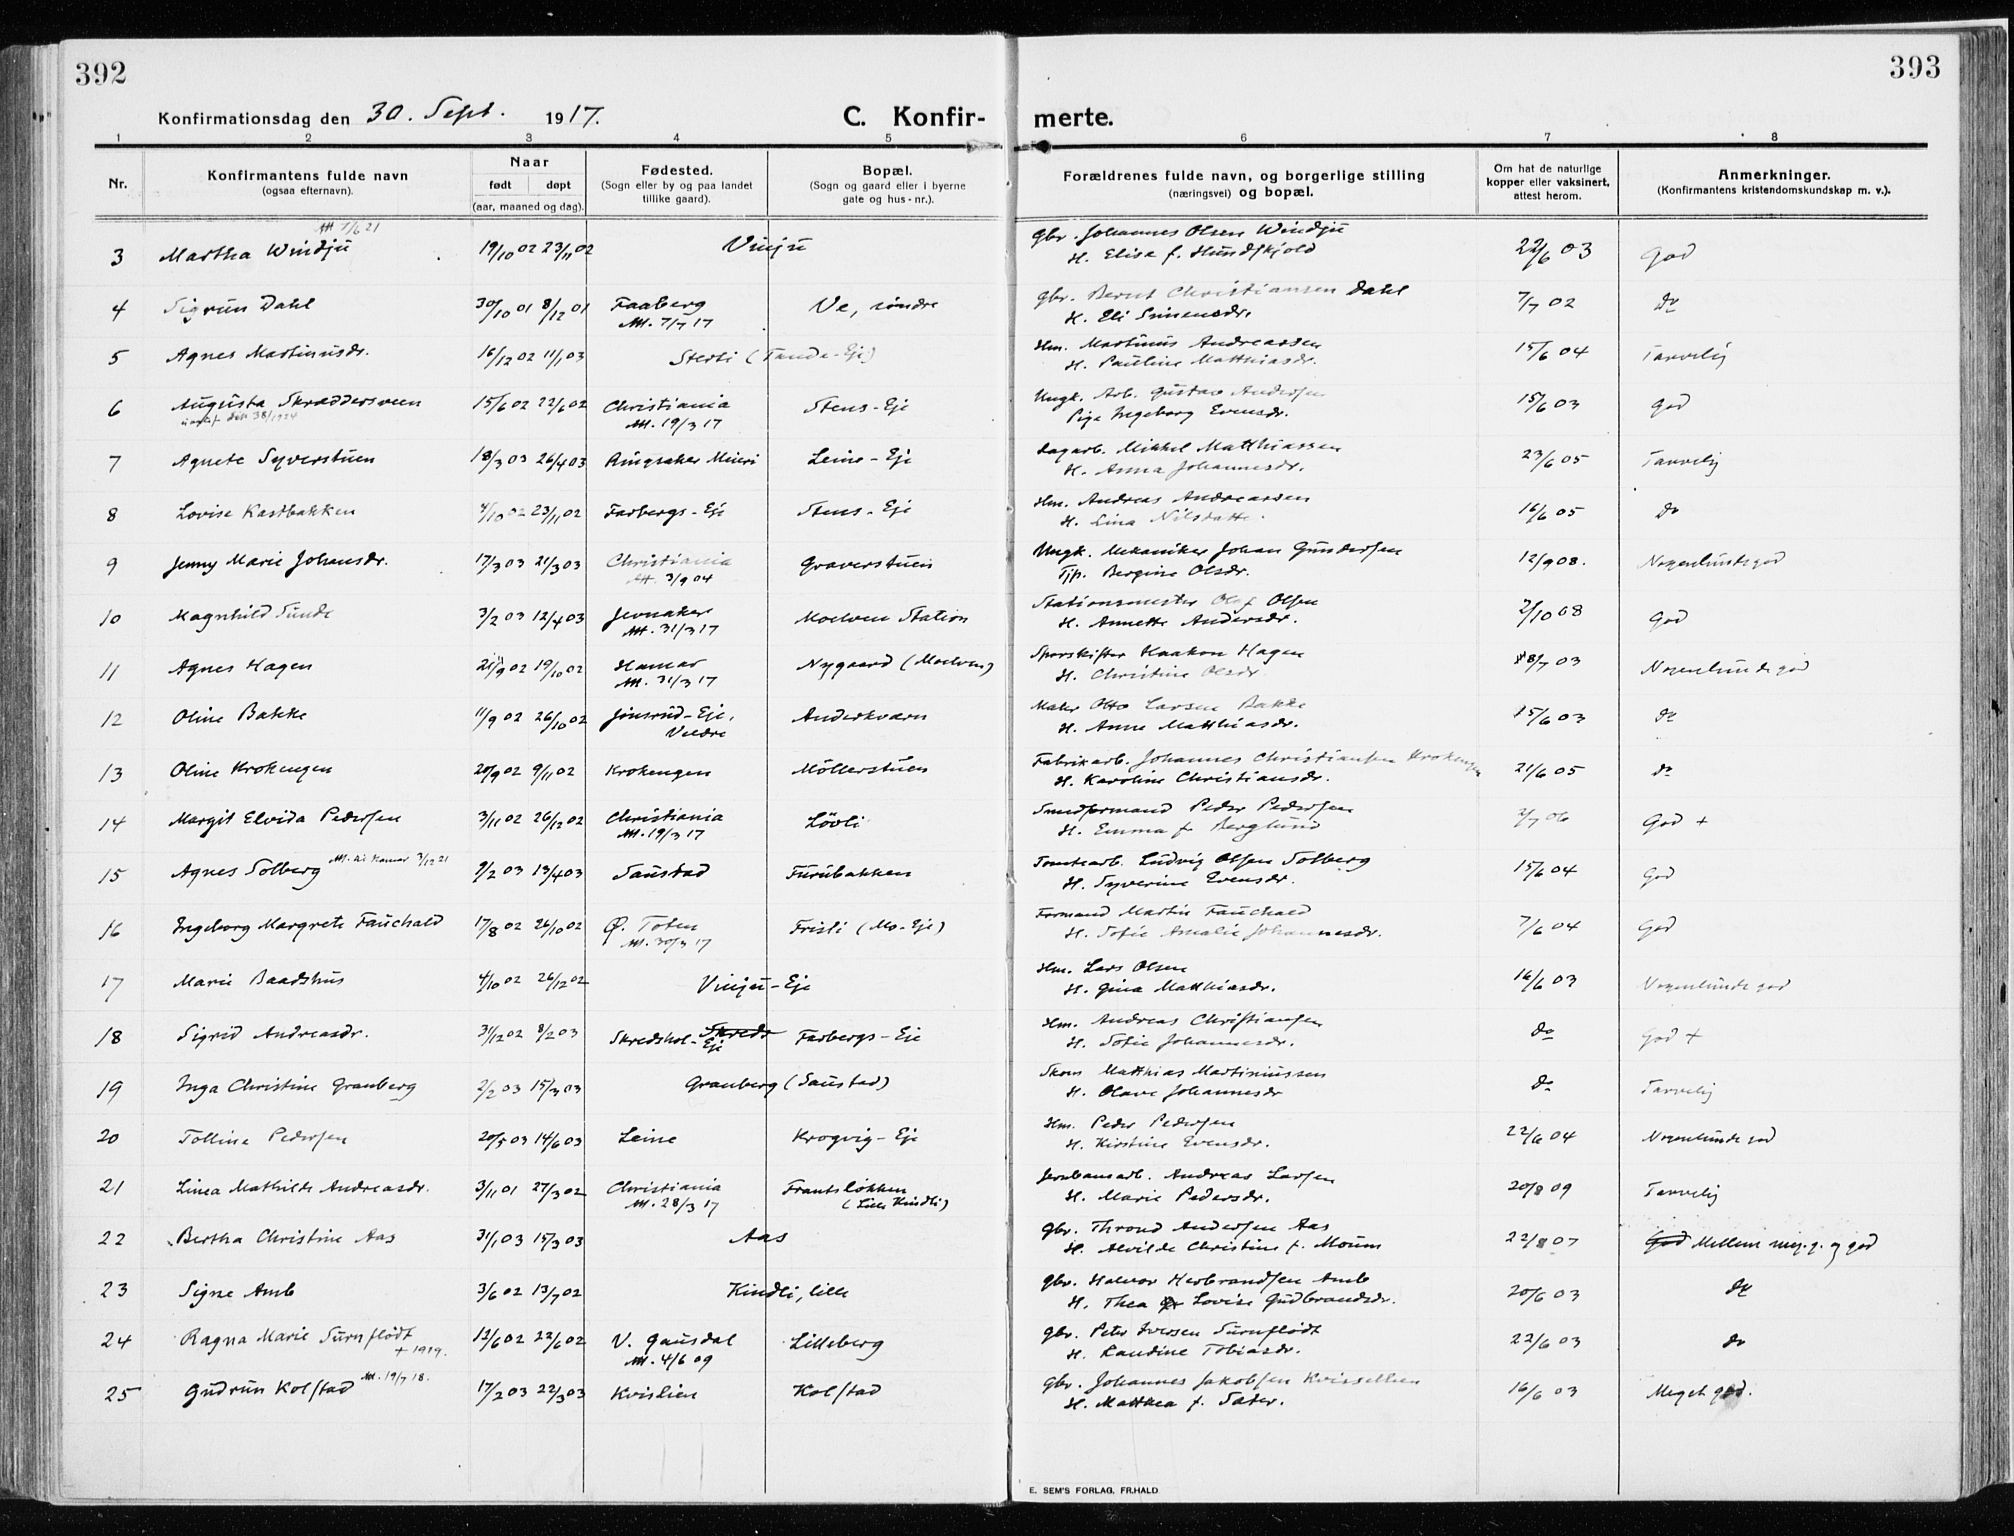 392
393
Konfirmationsdag den 30. Sept. 1917.
C. Konfir- merte.
1 2 3 4 5 6 7 8
Nr.
Konfirmantens fulde navn
(ogsaa efternavn).
Naar
født døpt
(aar, maaned og dag).
Fødested.
(Sogn eller by og paa landet
tillike gaard).
Bopæl.
(Sogn og gaard eller i byerne
gate og hus-nr.).
Forældrenes fulde navn, og borgerlige stilling
(næringsvei) og bopæl.
Om hat de naturlige
kopper eller vaksinert,
attest herom.
Anmerkninger.
(Konfirmantens kristendomskundskap m. v.).
Att 7/6 21
3 Martha Windju 19/10 02 23/11 02 Vinju Gbr. Johannes Olsen Windju 22/6 03 God
H. Elise f. Hundskjold
4 Sigrun Dahl 30/10 01 8/12 01 Faaberg Ve, søndre Gbr. Bernt Christiansen Dahl 7/7 02 do
Att. 7/7 17 H. Eli Simensdr.
5 Agnes Martinusdr. 16/12 02 11/1 03 Sterti (Tande-Eje) Hm. Martinus Andreassen 15/6 04 Tarvelig
H. Pauline Matthiasdr.
6 Augusta Skræddersveen 15/6 02 22/6 02 Christiania Stens-Eje Ungk. Arb. Gustav Andersen 15/6 03 God
Att. 19/3 17 Pige Ingeborg Evensdr.
7 Agnete Syverstuen 18/3 03 26/4 03 Ringsaker Meieri Leine-Eje Dagarb. Mikkel Matthiassen 23/6 05 Tarvelig
H. Anna Johannesdr.
8 Lovise Kastbakken 4/10 02 23/11 02 Farbergs-Eje Stens-Eje Hm. Andreas Andreassen 16/6 05 do
H. Lina Nilsdatte.
9 Jenny Marie Johansdr. 17/3 03 21/3 03 Christiania Graverstuen Ungk. Mekaniker Johan Gundersen 12/9 08. Nogenlunde god
Att. 3/9 04 Tjp. Bergine Olsdr.
10 Magnhild Sunde 3/2 03 12/4 03 Jevnaker Moelven Station Stationsmester Olaf Olsen 2/10 08 God
Att. 31/3 17 H. Annette Andersdr.
11 Agnes Hagen 21/9 02 19/10 02 Hamar Nygaard (Moelven) Sporskifter Haakon Hagen 8/7 03 Nogenlunde god
Att. 31/3 17 H. Christine Olsdr
12 Oline Bakke 11/9 02 26/10 02 Jønsrud-Eje, Anderkværn Maler Otto Larsen Bakke 15/6 03 do
Veldre H. Anne Matthiasdr.
13 Oline Krokengen 20/9 02 9/11 02 Krokengen Möllerstuen Fabrikarb. Johannes Christiansen Krokengen 21/6 05 do
H. Karoline Christiansdr.
14 Margit Elvida Pedersen 3/11 02 26/12 02 Christiania Lövli Smedformand Peder Pedersen 2/7 06 God +
Att. 19/3 17 H. Emma f. Berglund
15 Agnes Solberg Att. til Hamar 3/12 21 9/2 03 13/4 03 Saustad Furubakken Tomtearb. Ludvig Olsen Solberg 15/6 04 God
H. Syverine Evensdr.
16 Ingeborg Margrete Fauchald 17/8 02 26/10 02 Ø. Toten Fristi (Mo-Eje) Formand Martin Fauchald 7/6 04 God
Att. 30/3 17 H. Sofie Amalie Johannesdr.
17 Marie Baadshus 4/10 02 26/12 02 Vinju-Eje Hm. Lars Olsen 16/6 03 Nogenlunde god
H. Gina Matthiasdr.
18 Sigrid Andreasdr. 31/12 02 8/2 03 Skredshol-Eje Farbergs-Eie Hm. Andreas Christiansen do God +
H. Sofie Johannesdr.
19 Inga Christine Granberg 2/2 03 15/3 03 Granberg (Saustad) Skom Matthias Martiniussen do Tarvelig
H. Olave Johannesdr
20 Tolline Pedersen 20/5 03 14/6 03 Leine Krogvig-Eje Hm. Peder Pedersen 22/6 04 Nogenlunde god
H. Kirstine Evensdr.
21 Linea Mathilde Andreasdr. 3/11 01 27/3 02 Christiania Frantsløkken Jernbanearb. Andreas Larsen 20/8 09 Tarvelig
Att. 28/3 17 (Lille Kindli) H. Marie Pedersdr.
22 Bertha Christine Aas 31/1 03 15/3 03 Aas Gbr. Thrond Andersen Aas 22/8 07 God Mellem meg. g. og god
H. Alvilde Christine f. Moum
23 Signe Amb 3/6 02 13/7 02 Kindli, lille Gbr. Halvor Herbrandsen Amb 20/6 03 do
H. Thea Lovise Gudbrandsdr.
24 Ragna Marie Surnflødt 12/6 02 22/6 02 V. Gausdal Lilleberg Gbr. Peter Iversen Surnflødt 22/6 03 do
+ 1919. Att. 4/6 09 H. Randine Tobiasdr.
25 Gudrun Kolstad Att. 19/7 18. 17/2 03 22/3 03 Kvislien Kolstad Gbr. Johannes Jakobsen Kvissellien 16/6 03 Meget god.
H. Matthea f. Sæter.
E. SEM'S FORLAG, FR.HALD